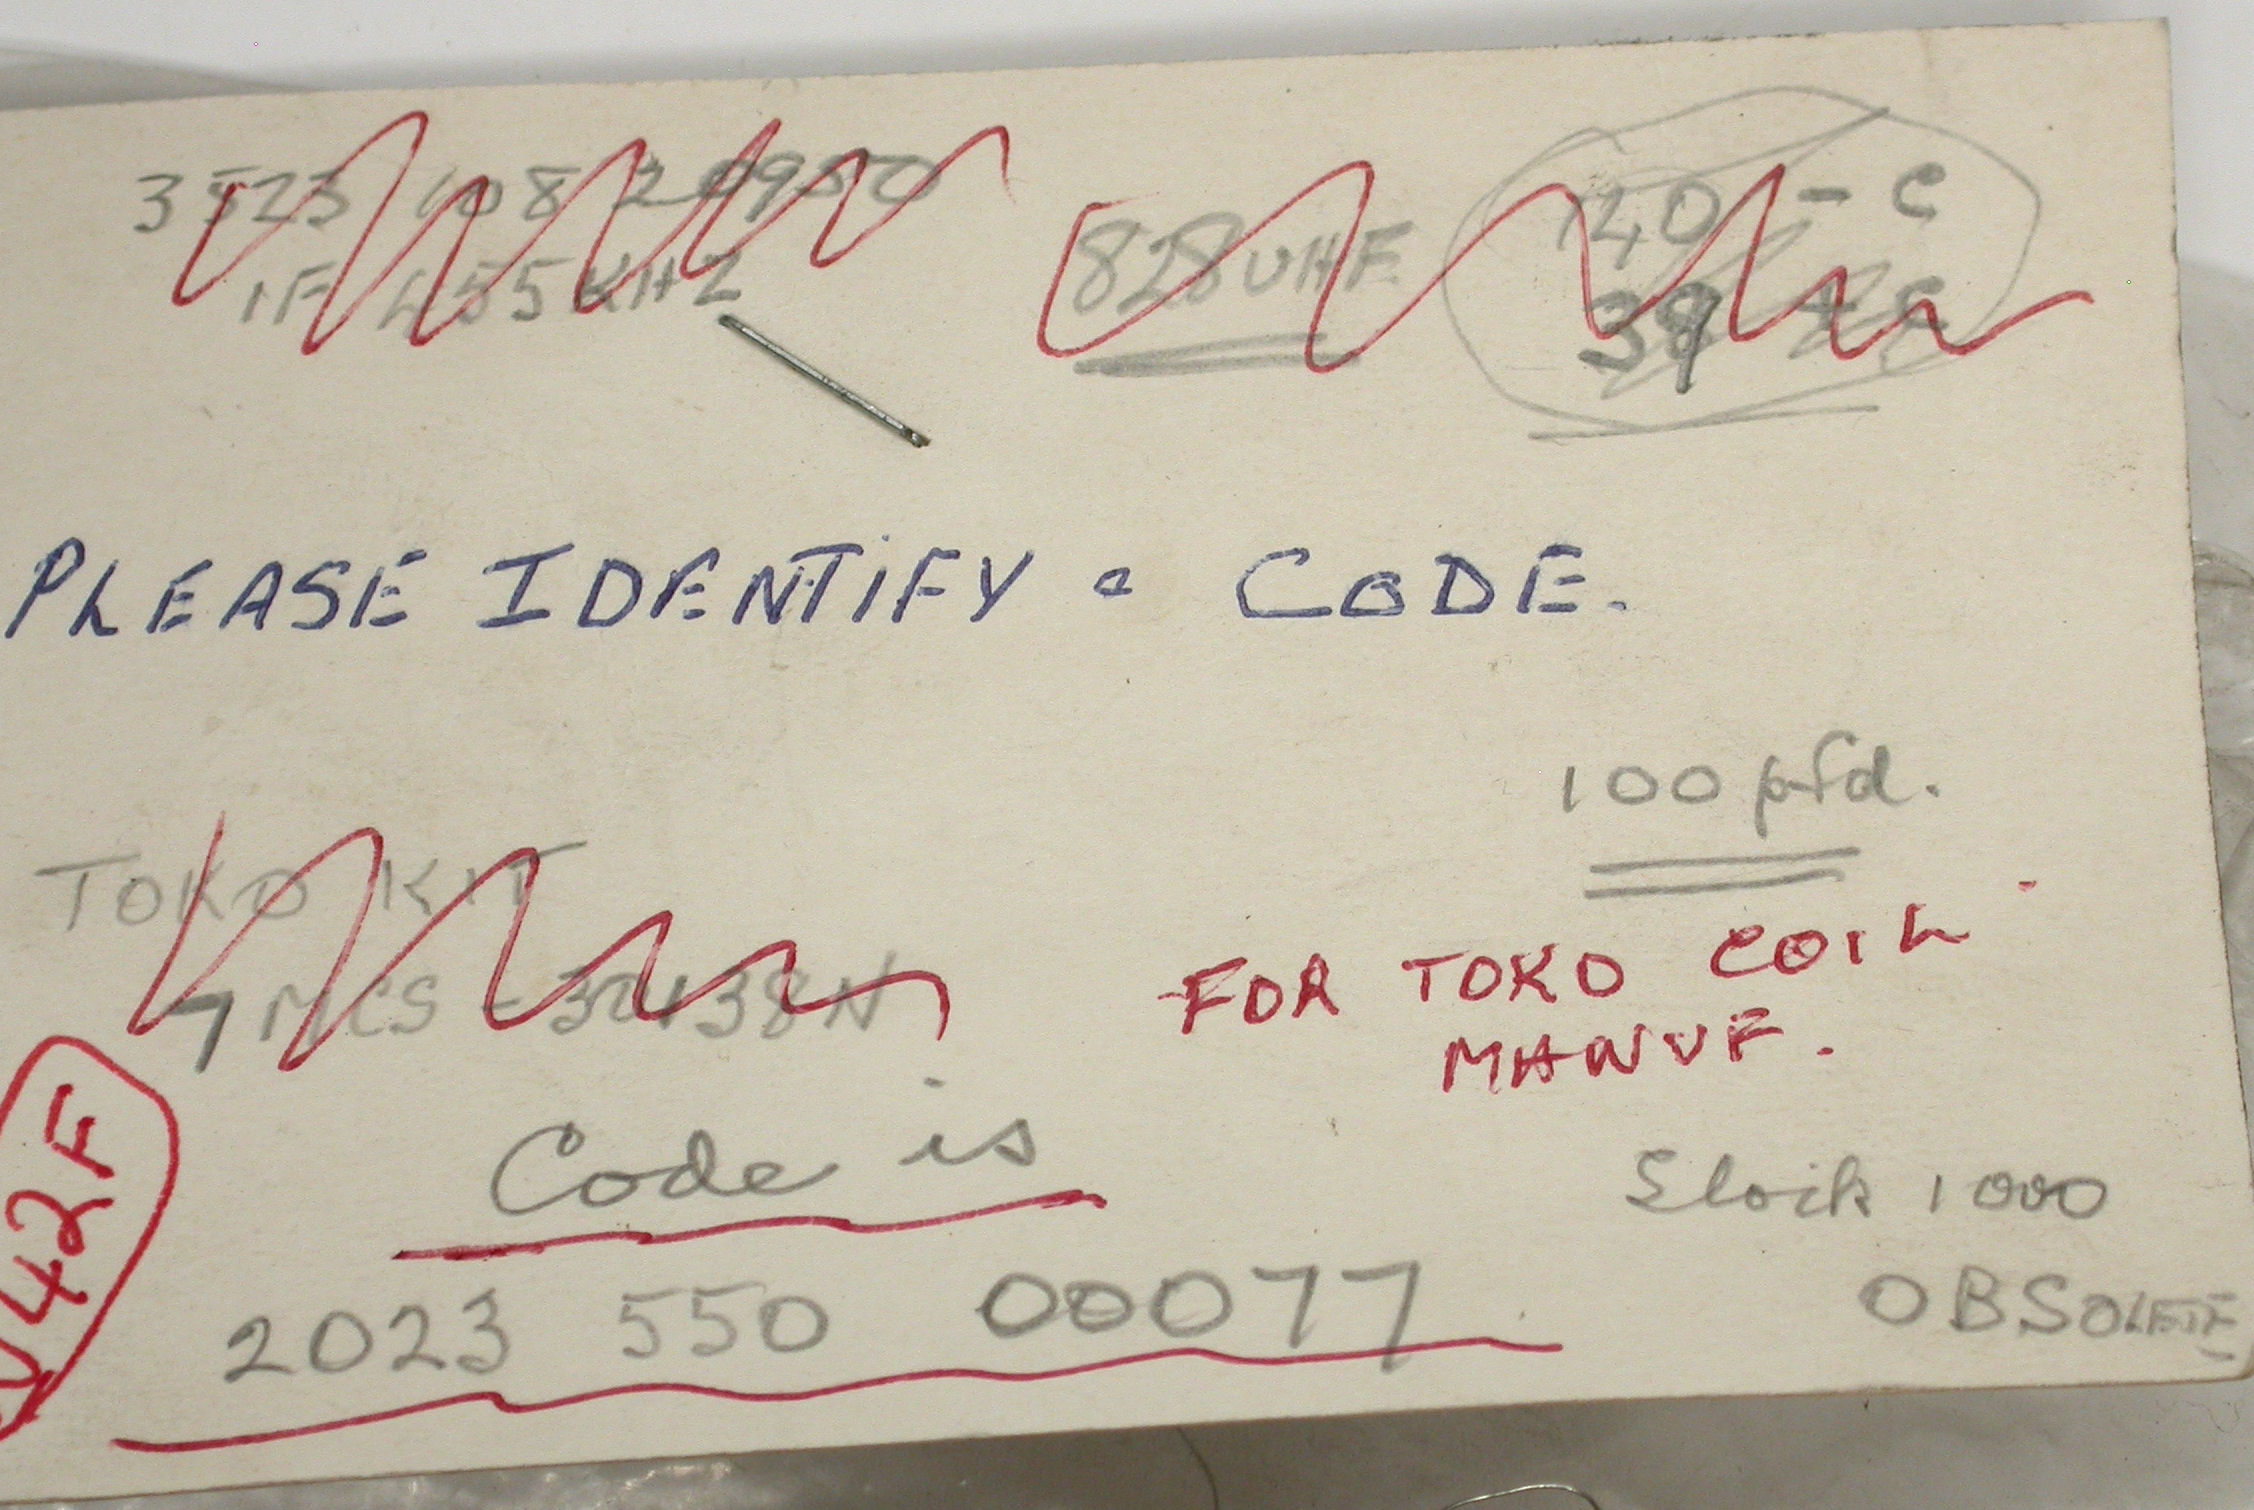 3523 108 20950
IF 455 KHZ
828 UHF
120 - C
39
PLEASE IDENTIFY = CODE.
100 pfd.
TOKO KIT
7 MCS - 30138N
FOR TOKO COIL
MANUF.
Code is
Stock 1000
2023 550 00077
OBSOLETE
V42F